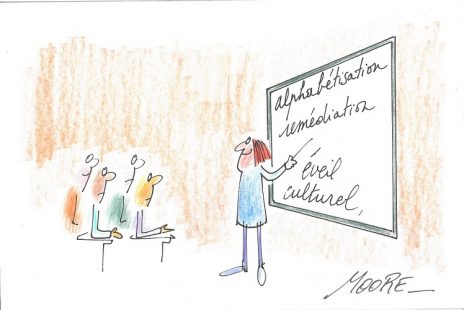 alphabétisation
remédiation
éveil
culturel,
MOORE_